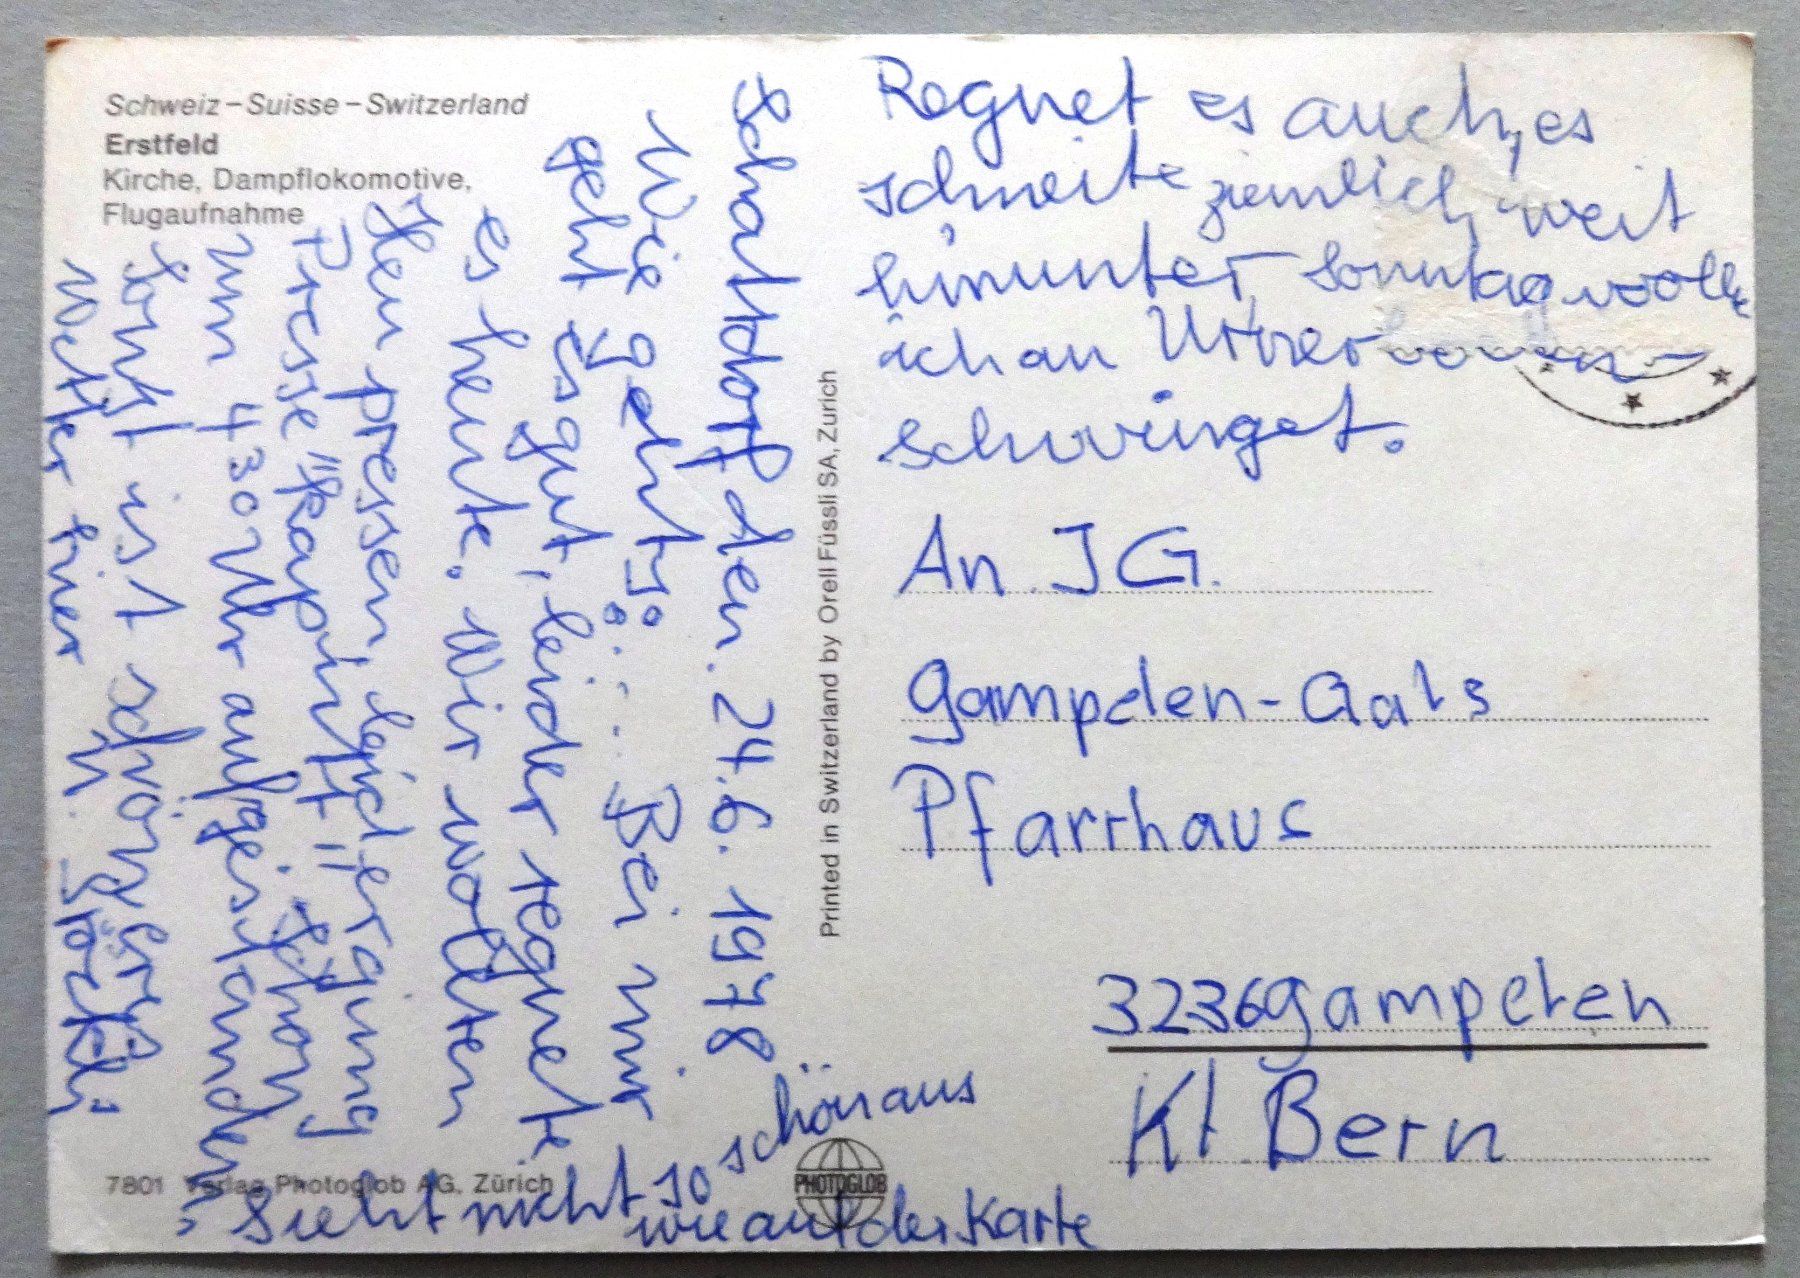 Schweiz – Suisse – Switzerland
Erstfeld
Kirche, Dampflokomotive,
Flugaufnahme
Schattdorf den. 24.6. 1978
Wie geht's? Bei mir
geht es gut, leider regnete
es heute. Wir wollten
Heu pressen, leider ging
Presse "kaputt" schon
um 430 Uhr aufgestanden
sonst ist schöneres
wetter hier in
sieht nicht so schön aus
wie auf der Karte
Regnet es auch, es
schneite ziemlich weit
hinunter Sonntag wollte
ich an
schwinget.
An JG.
Gampelen-Gals
Pfarrhaus
3236 Gampelen
Kt Bern
Printed in Switzerland by Orell Füssli SA, Zurich
7801 Verlag Photoglob AG, Zürich
PHOTOGLOB